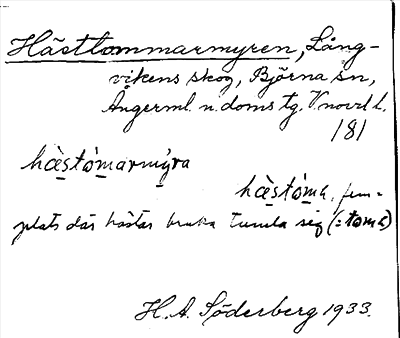 Hästtommarmyren, Lång-
vikens skog, Björna sn,
Ångerml. n. doms tg. V. norrl. l.
181
hæstómarmýra
hæstóma, fem =
plats där hästar bruka tumla sig (: toma)
H. A. Söderberg 1933.